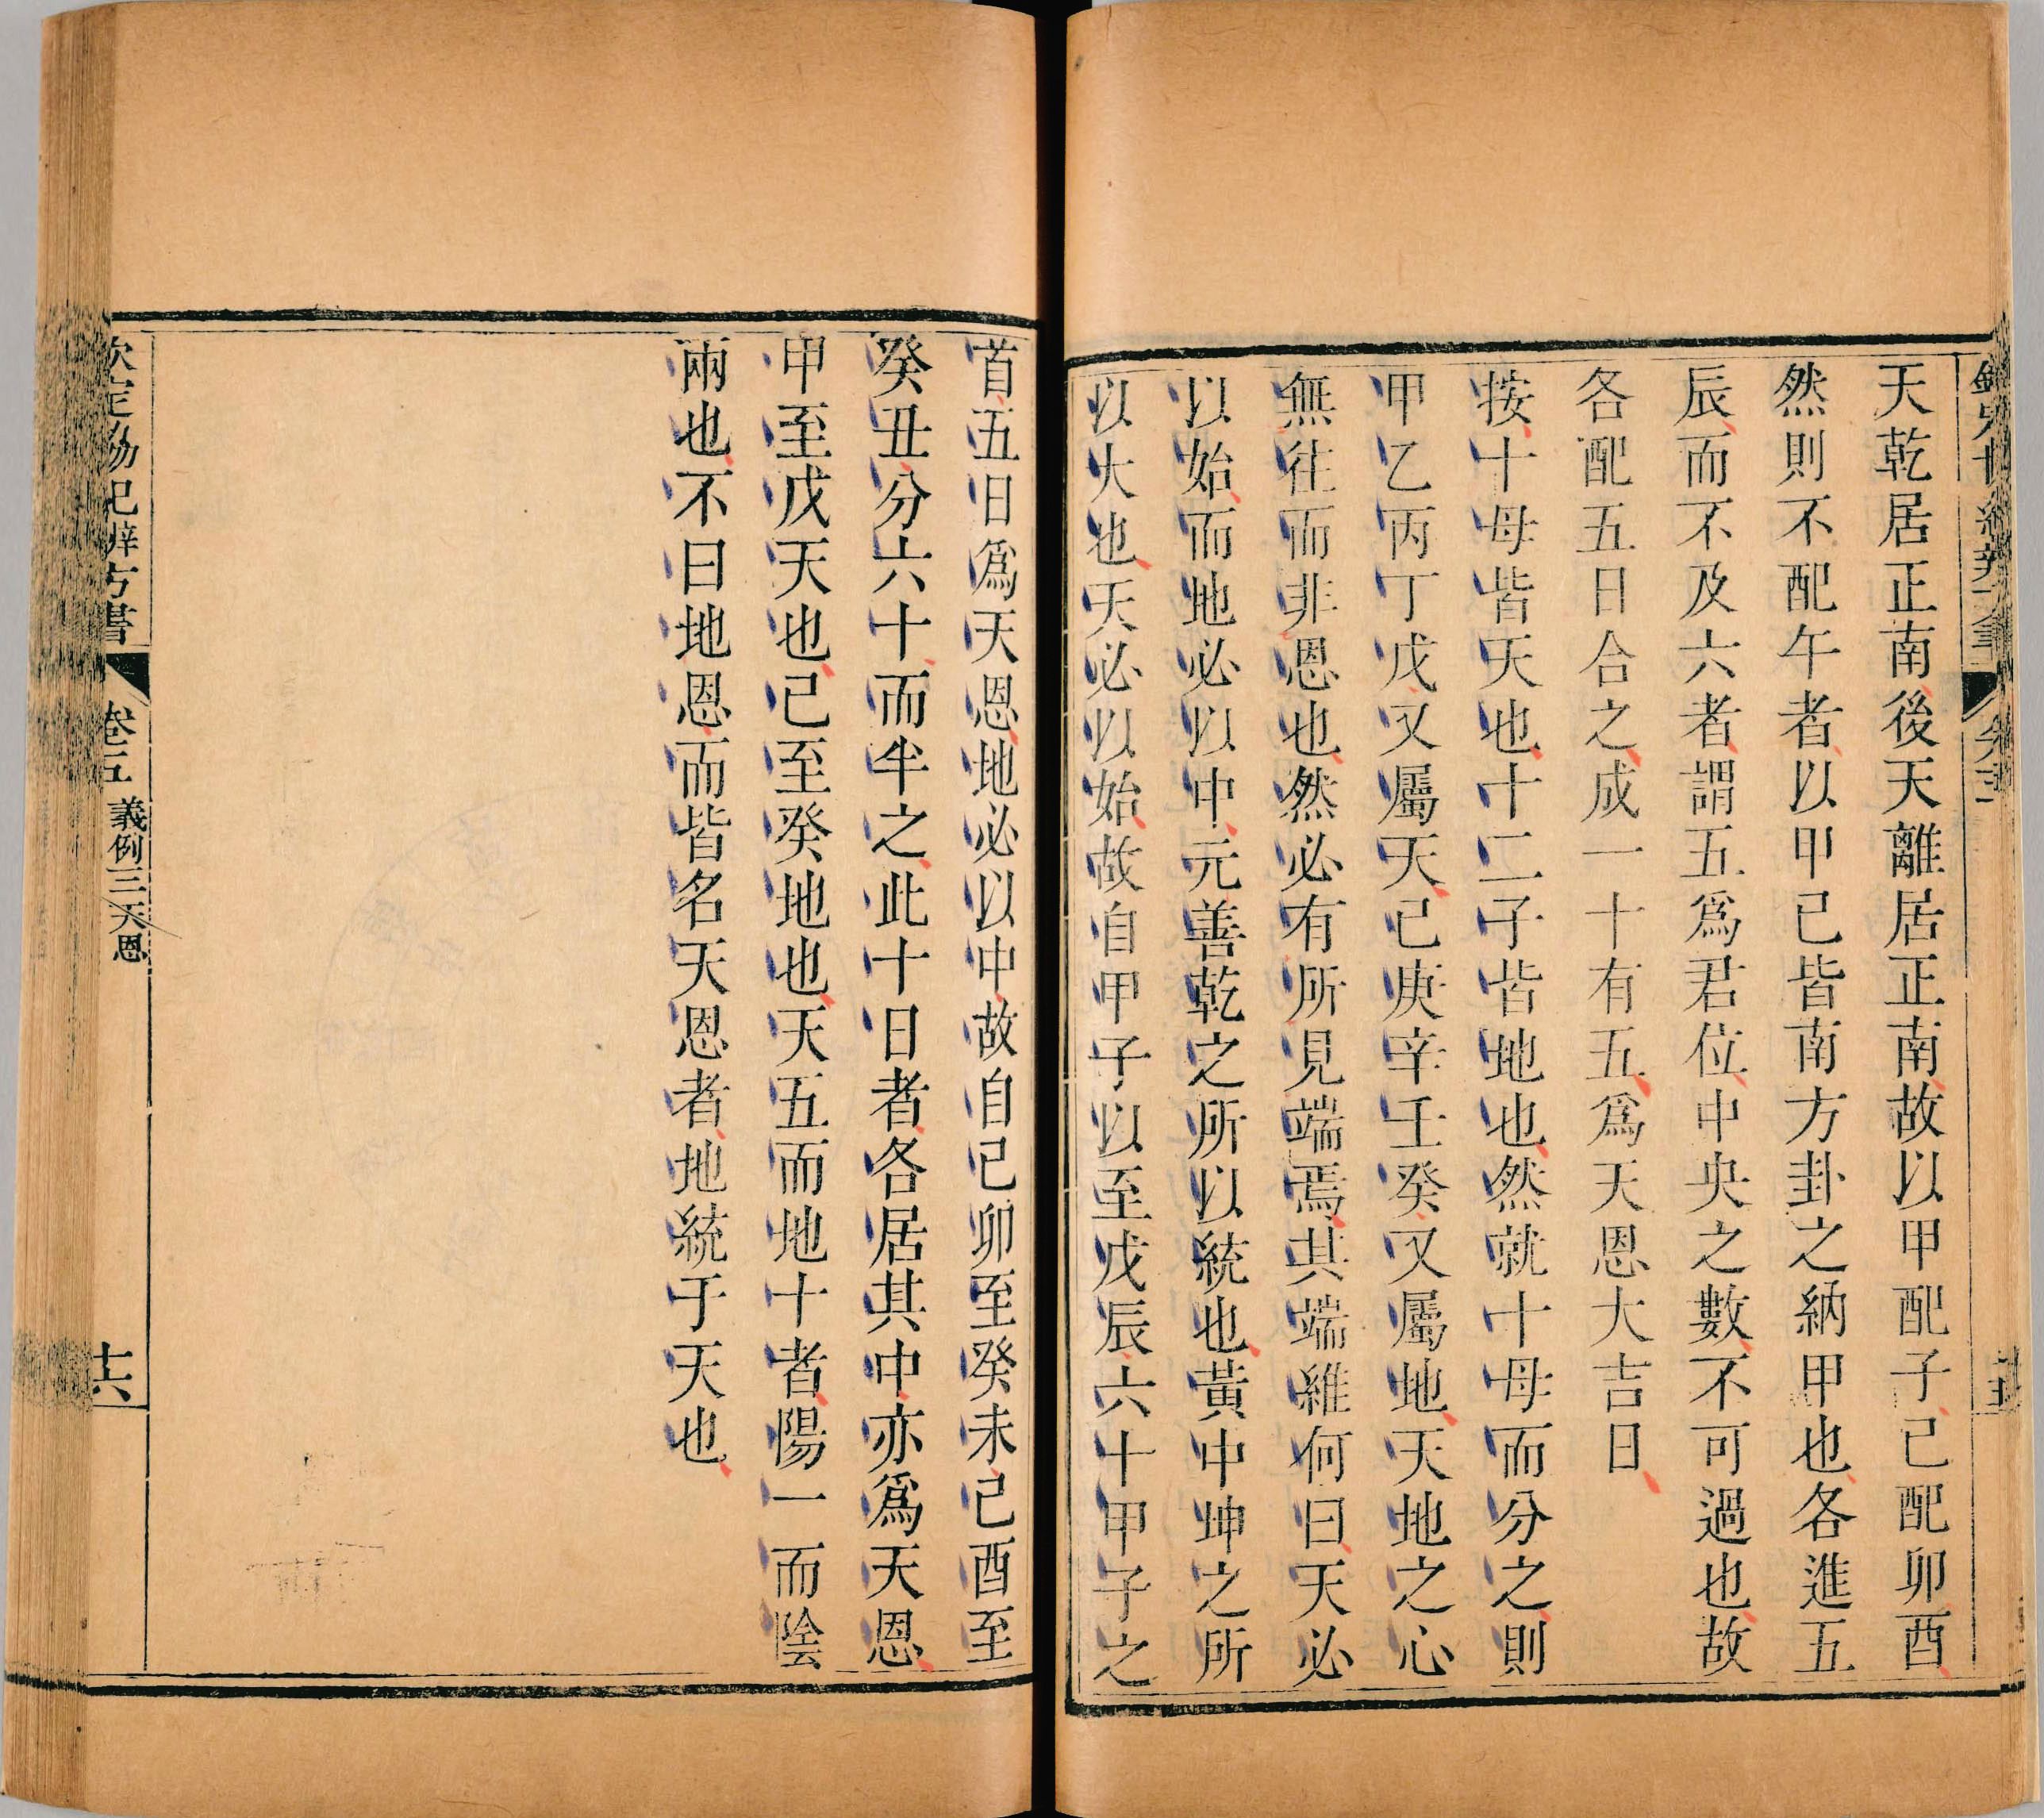 天乾居正南後天離居正南故以甲配子己配卯酉
然則不配午者以甲己皆南方卦之納甲也各進五
辰而不及六者謂五爲君位中央之數不可過也故
各配五日合之成一十有五爲天恩大吉日
按十母皆天也十二子皆地也然就十母而分之則
甲乙丙丁戊又屬天己庚辛壬癸又屬地天地之心
無往而非恩也然必有所見端焉其端維何曰天必
以始而地必以中元善乾之所以統也黃中坤之所
以大也天必以始故自甲子以至戊辰六十甲子之
首五日爲天恩地必以中故自己卯至癸未己酉至
癸丑分六十而半之此十日者各居其中亦爲天恩
甲至戊天也己至癸地也天五而地十者陽一而陰
兩也不曰地恩而皆名天恩者地統于天也
卷五 義例三天恩
十六